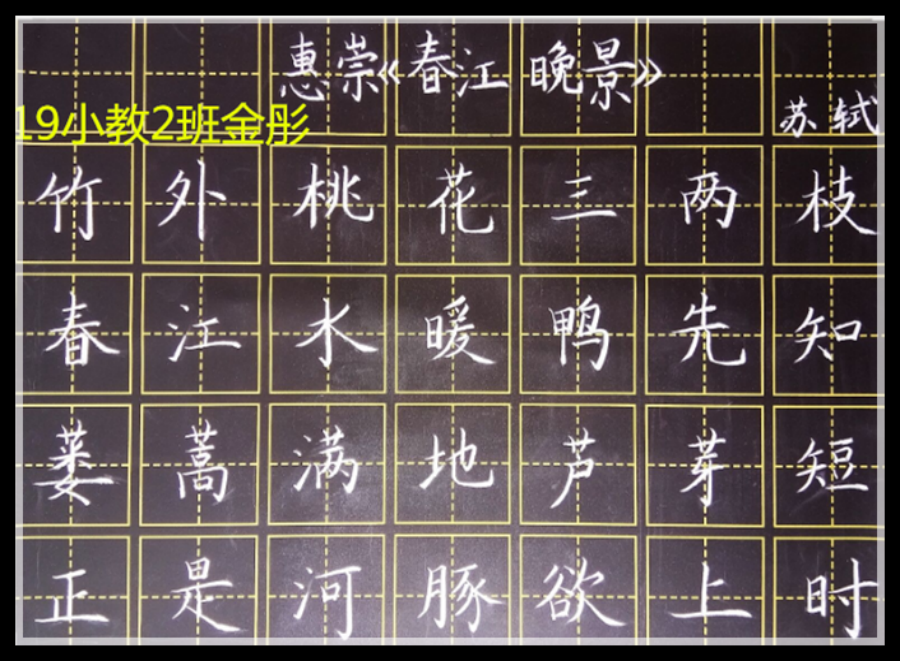 惠崇《春江晚景》
19小教2班金彤
苏轼
竹外桃花三两枝
春江水暖鸭先知
蒌蒿满地芦芽短
正是河豚欲上时